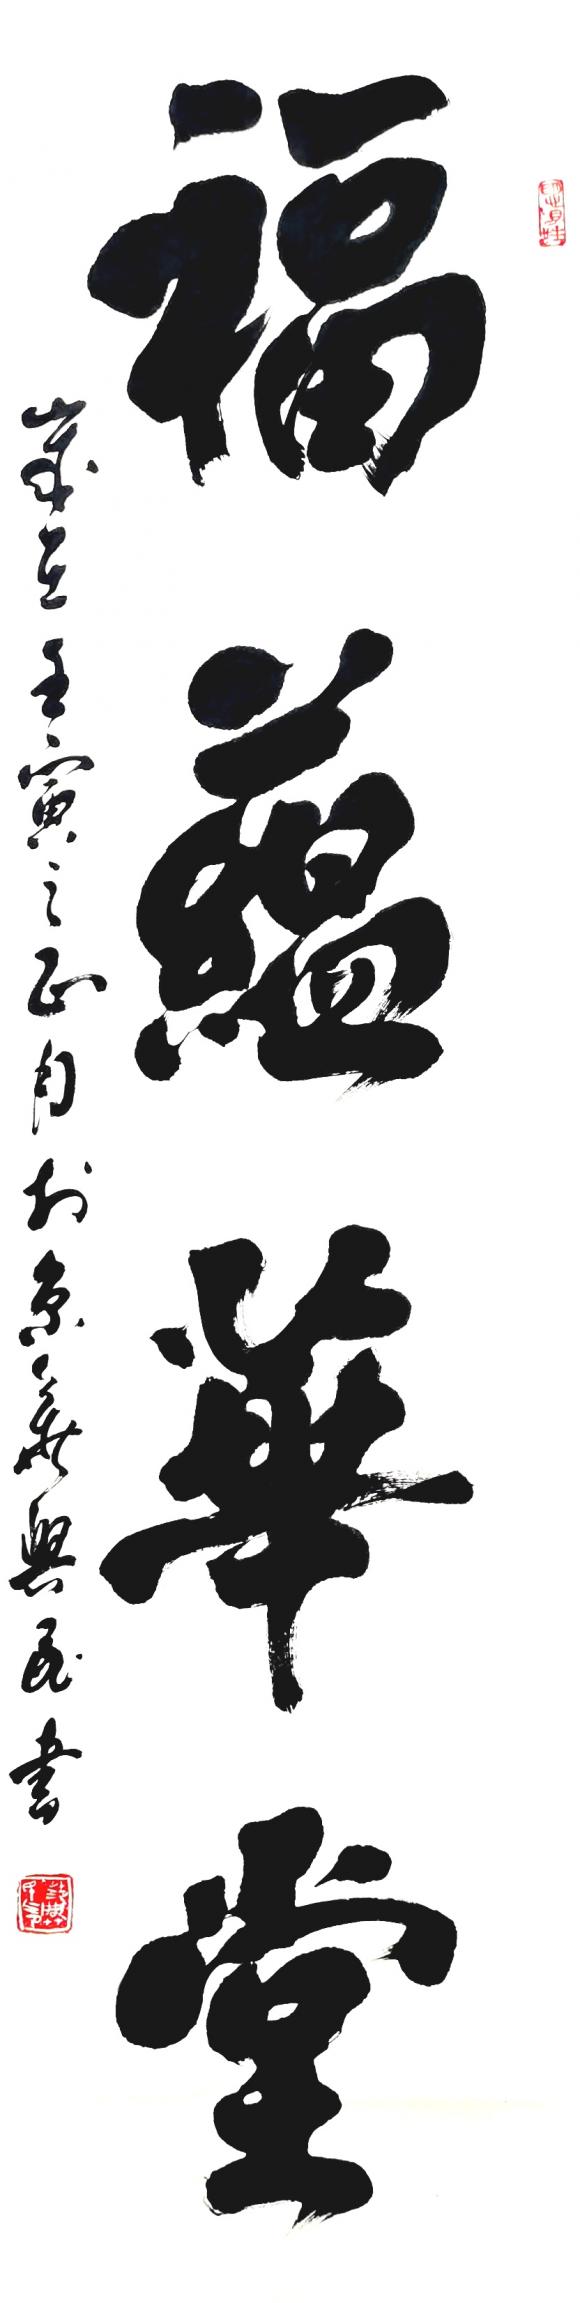 福蘊華堂
歲在壬寅之正月於京華興民書